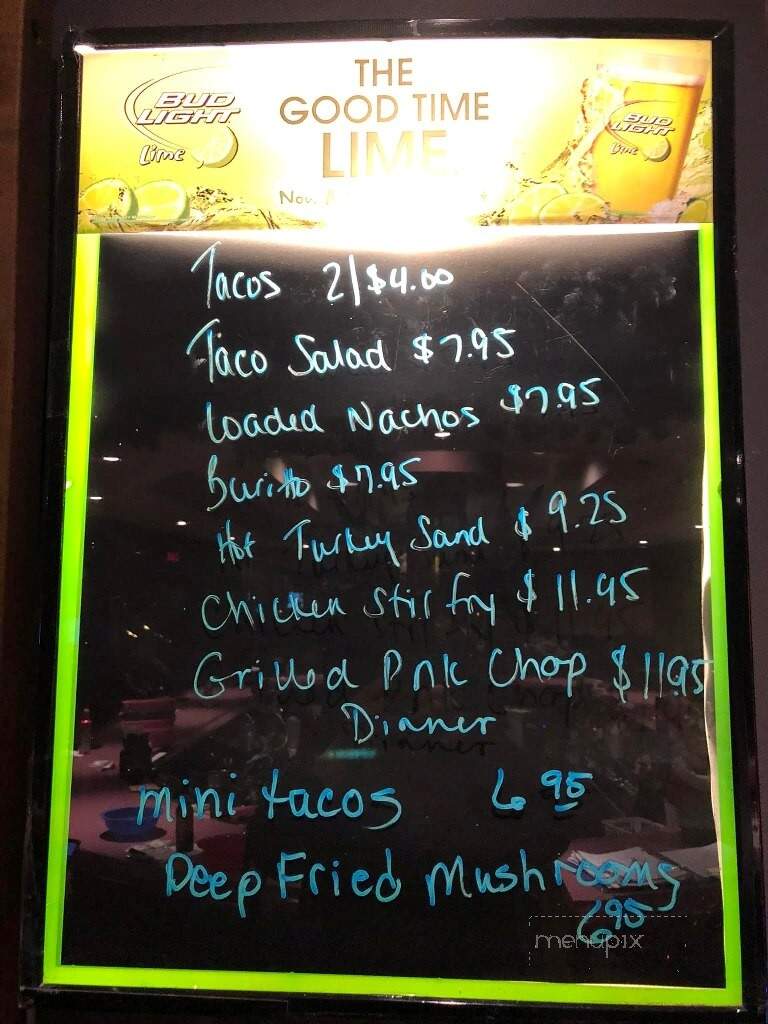 BUD LIGHT Lime
THE
GOOD TIME
LIME
BUD LIGHT Lime
Tacos 2/$4.00
Taco Salad $7.95
Loaded Nachos $7.95
Buritto $7.95
Hot Turkey Sand $9.25
Chicken Stir fry $11.95
Grilled Pork Chop $11.95
Dinner
mini tacos 6.95
Deep Fried Mushrooms
6.95
menupix